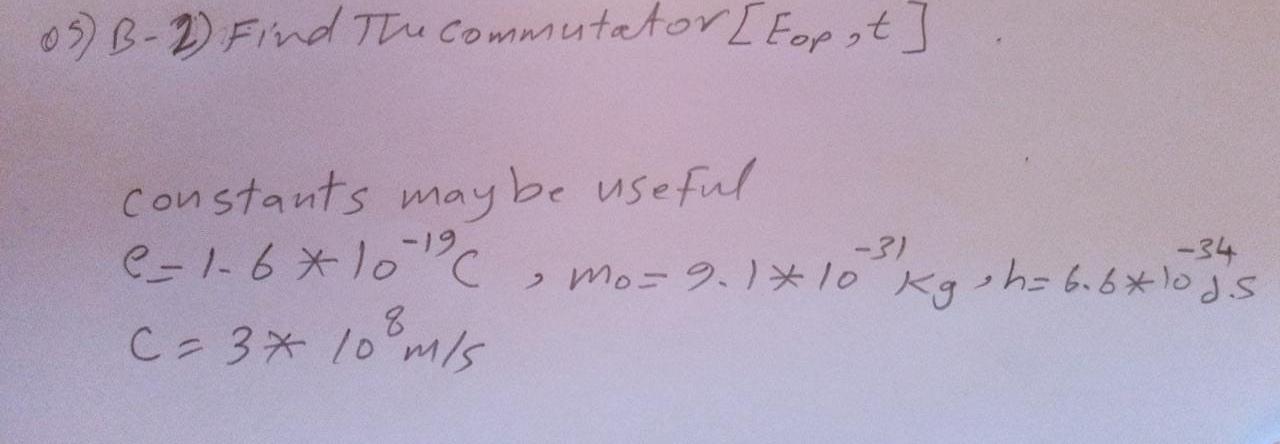 05) B-2) Find The commutator [Eop, t]
constants may be useful
e=1.6*10⁻¹⁹C, m₀=9.1*10⁻³¹kg, h=6.6*10⁻³⁴J.S
C=3*10⁸m/s